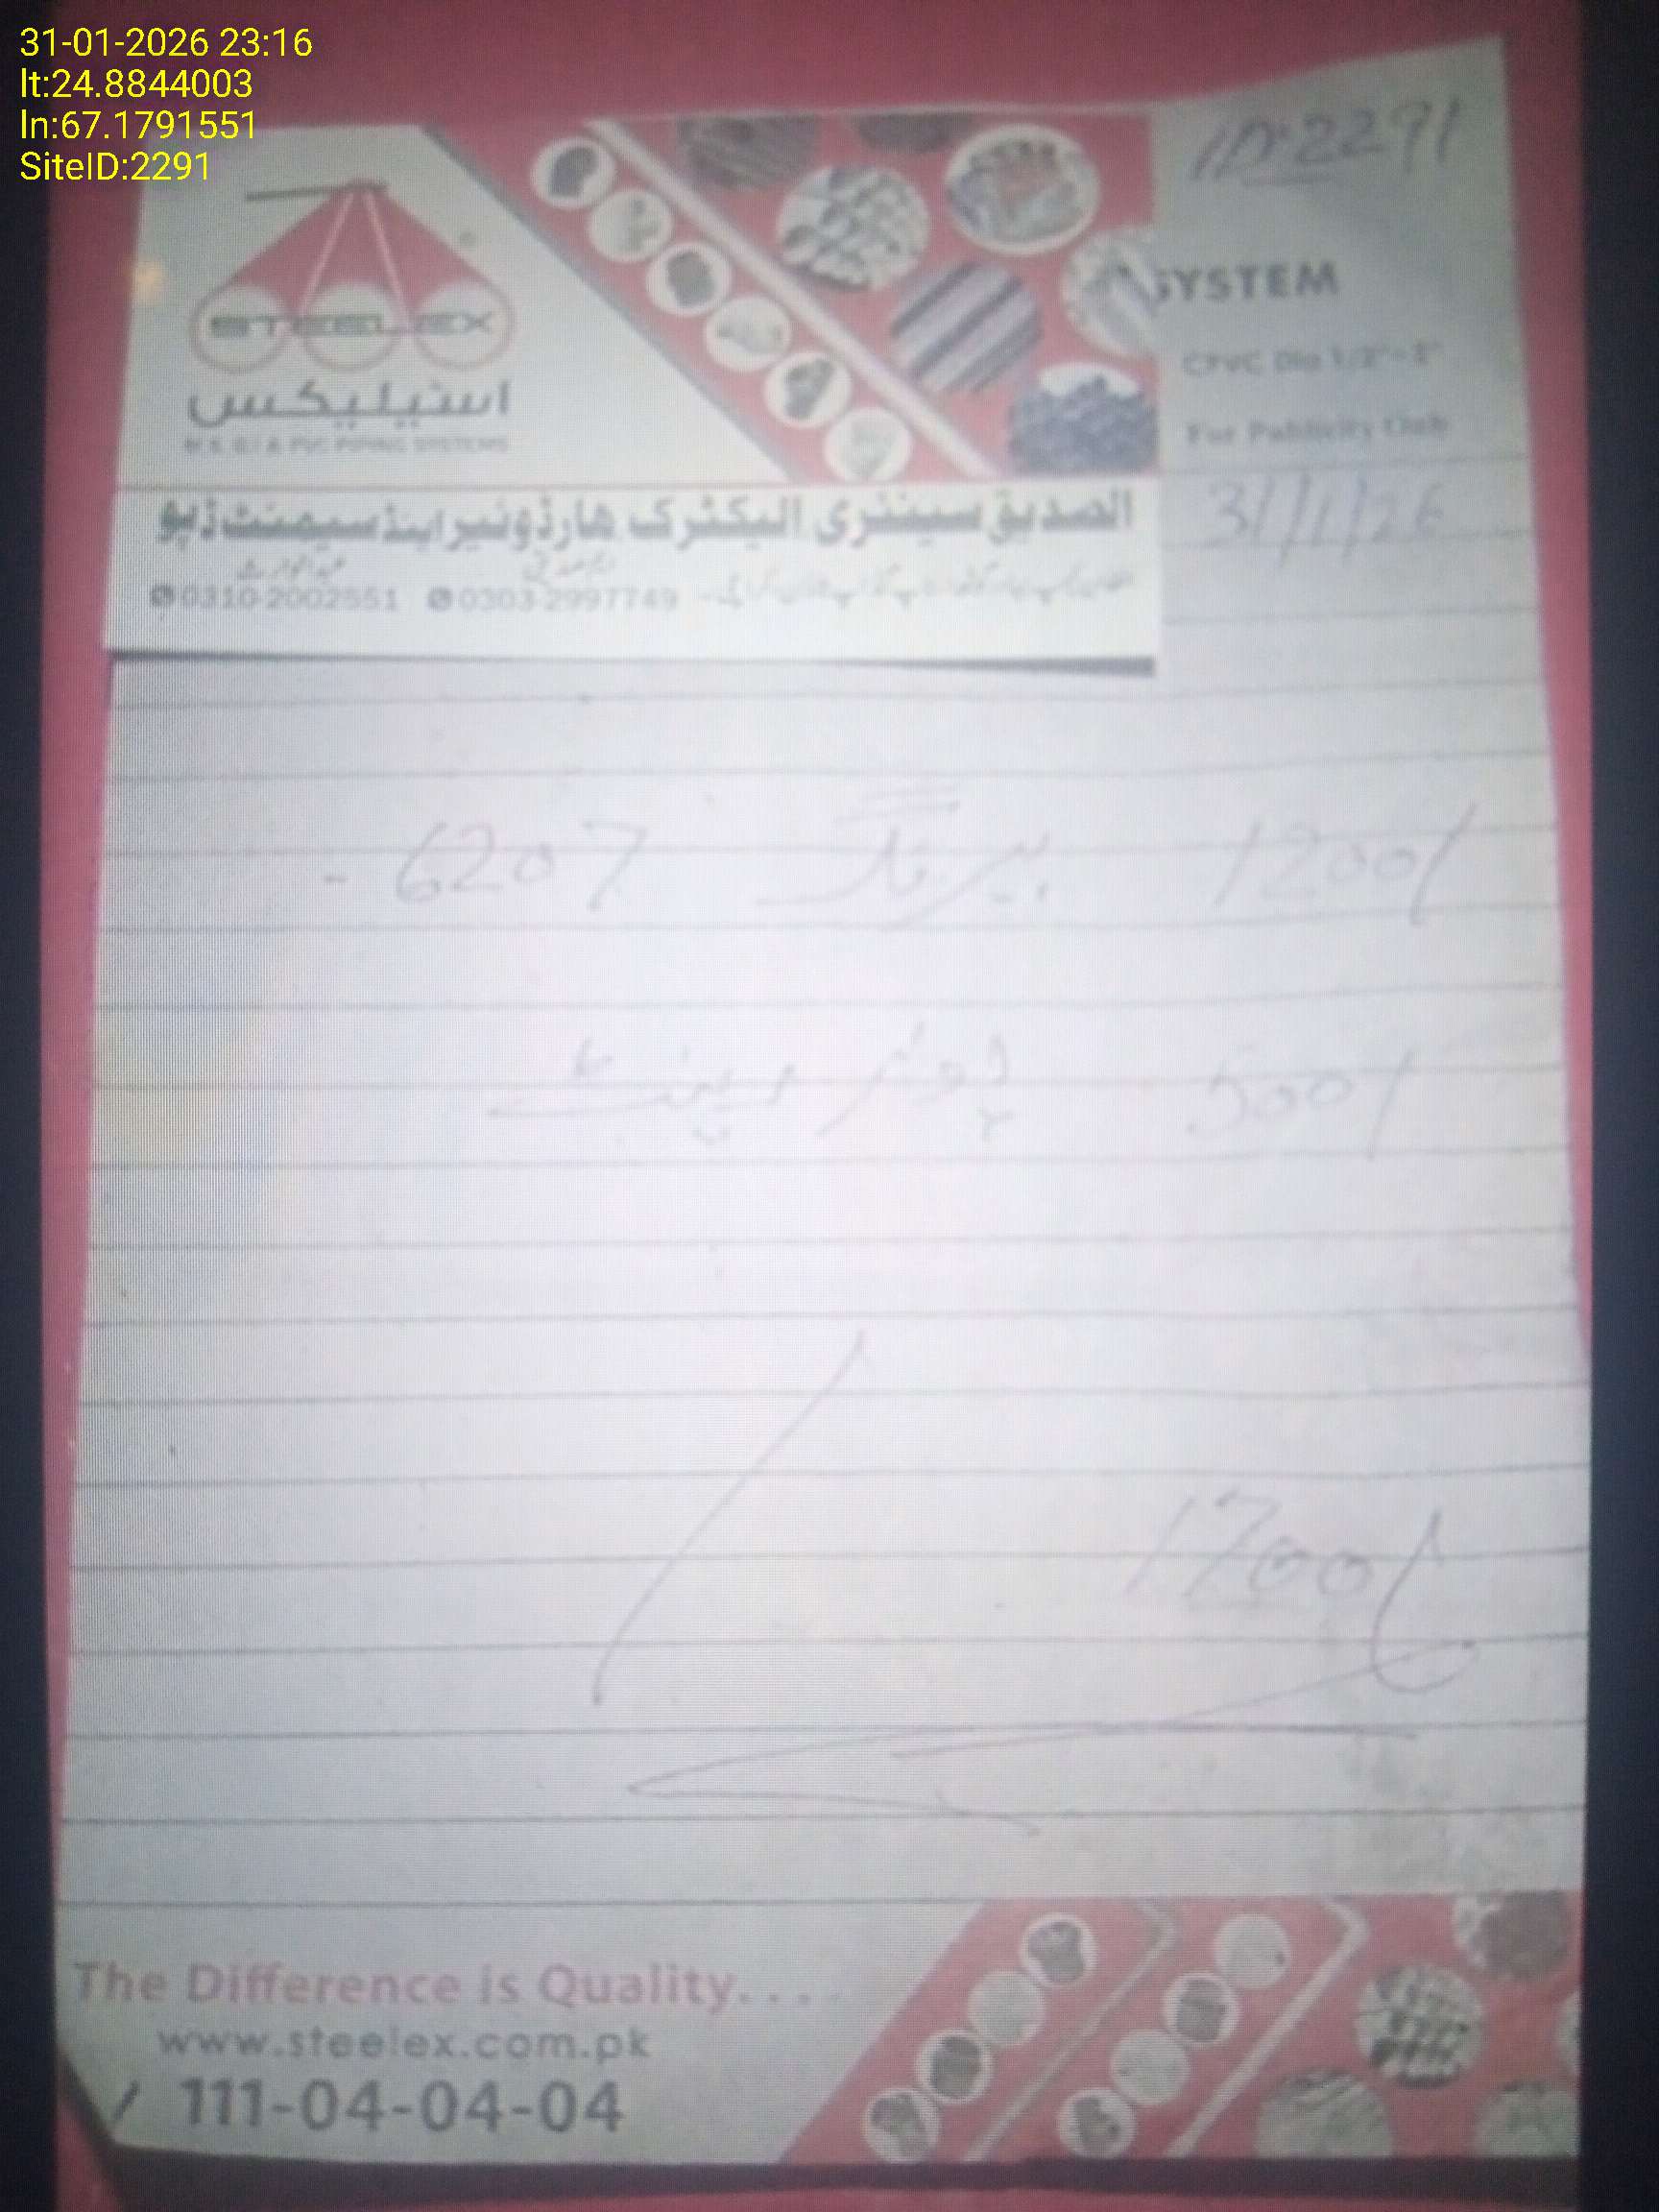 31-01-2026 23:16
lt:24.8844003
ln:67.1791551
SiteID:2291
ID:2291
STEELEX
اسٹیلیکس
M.S, G.I & PVC PIPING SYSTEMS
SYSTEM
CPVC Dia 1/2"-2"
For Publicity Only
31/1/26
الصدیق سینٹری الیکٹرک ہارڈوئیر اینڈ سیمنٹ ڈپو
0310-2002551 0303-2997749
1200/ بیرنگ 6207 -
500/
1700/
The Difference is Quality....
www.steelex.com.pk
111-04-04-04